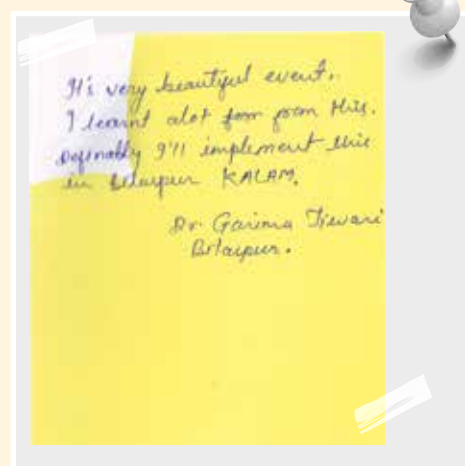 It's very beautiful event.
I learnt alot form from this.
Definably I'll implement this
in Bilaspur KALAM.
Dr. Garima Tiwari
Bilaspur.